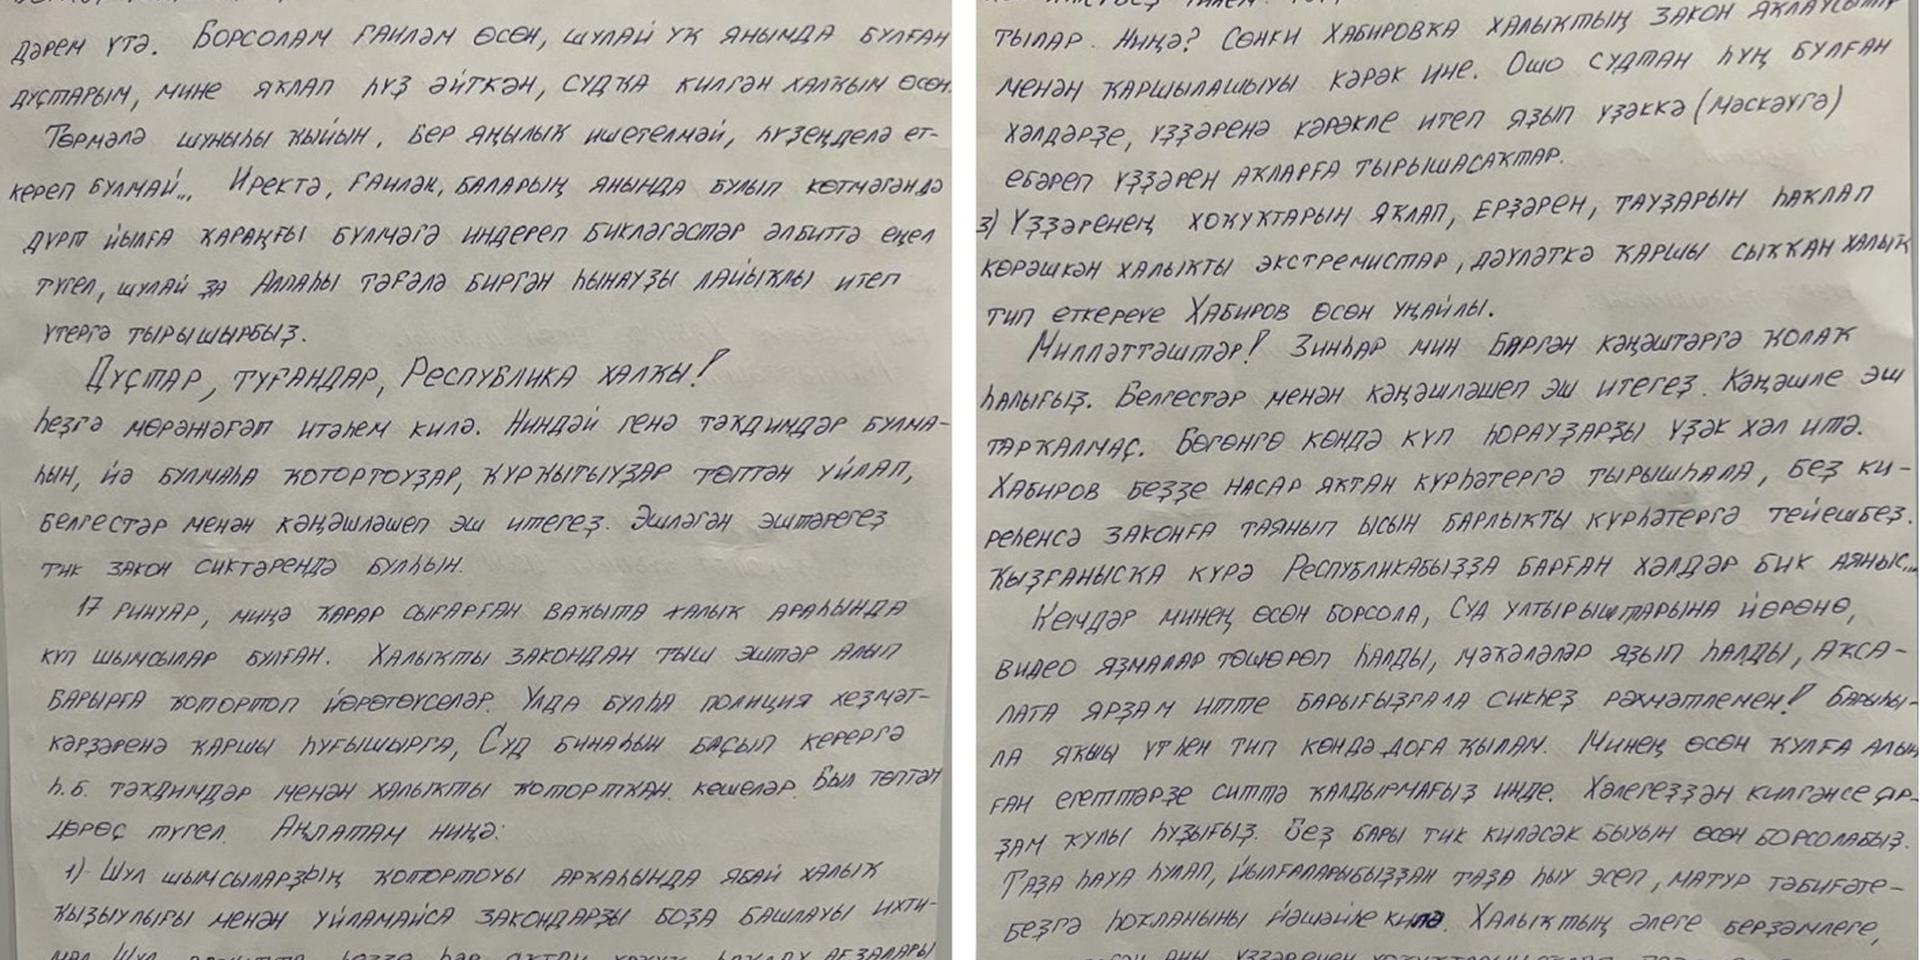 дәрем үтә. Борсолам ғаиләм өсөн, шулай уҡ янымда булған
дуҫтарым, мине яҡлап һүҙ әйткән, судҡа килгән халҡым өсөн.
Төрмәлә шуныһы ҡыйын, бер яңылыҡ ишетелмәй, һүҙеңделә ет-
кереп булмай... Иректә, ғаиләң, баларың янында булып көтмәгәндә
дүрт йылға ҡараңғы бүлмәгә индереп бикләгәстәр әлбиттә еңел
түгел, шулай ҙа Аллаһы тәғәлә биргән һынауҙы лайыҡлы итеп
үтергә тырышырбыҙ.
Дуҫтар, туғандар, Республика халҡы!
һеҙгә мөрәжәғәт итәһем килә. Ниндәй генә тәҡдимдәр булма-
һын, йә булмаһа ҡотортоуҙар, ҡурҡытыуҙар төптән уйлап,
белгестәр менән кәңәшләшеп эш итегеҙ. Эшләгән эштәрегеҙ
тик закон сиктәрендә булһын.
17 ғинуар, миңә ҡарар сығарған ваҡытта халыҡ араһында
күп шымсылар булған. Халыҡты закондан тыш эштәр алып
барырға ҡотортоп йөрөтөүселәр. Улда булһа полиция хеҙмәт-
кәрҙәренә ҡаршы һуғышырға, Суд бинаһын баҫып керергә
һ.б. тәҡдимдәр менән халыҡты ҡоторткан кешеләр. Был төптән
дөрөҫ түгел. Аңлатам ниңә:
1) Шул шымсыларҙың ҡотортоуы арҡаһында ябай халыҡ
ҡыҙыулығы менән уйламайса закондарҙы боҙа башлауы ихти-
тылар. Ниңә? Сөнки Хабировҡа халыҡтың закон яҡлаусылары
менән ҡаршылашыуы кәрәк ине. Ошо судтан һуң булған
хәлдәрҙе, үҙҙәренә кәрәкле итеп яҙып үҙәккә (Мәскәүгә)
ебәреп үҙҙәрен аҡларға тырышасаҡтар.
3) Үҙҙәренең хоҡуҡтарын яҡлап, ерҙәрен, тауҙарын һаҡлап
көрәшкән халыҡты экстремистар, дәүләткә ҡаршы сыҡҡан халыҡ
тип еткереүе Хабиров өсөн уңайлы.
Милләттәштәр! Зинһар мин биргән кәңәштәргә ҡолаҡ
һалығыҙ. Белгестәр менән кәңәшләшеп эш итегеҙ. Кәңәшле эш
тарҡалмаҫ. Бөгөнгө көндә күп һорауҙарҙы үҙәк хәл итә.
Хабиров беҙҙе насар яҡтан күрһәтергә тырышһала, беҙ ки-
реһенсә законға таянып ысын барлыҡты күрһәтергә тейешбеҙ.
Ҡыҙғанысҡа күрә Республикабыҙҙа барған хәлдәр бик аяныс...
Кемдәр минең өсөн борсола, Суд ултырыштарына йөрөнө,
видео яҙмалар төшөрөп һалды, мәҡәләләр яҙып һалды, аҡса-
лата ярҙам итте барығыҙғала сикһеҙ рәхмәтлемен! Барыһы-
ла яҡшы үтһен тип көндә доға ҡылам. Минең өсөн ҡулға алын-
ған егеттәрҙе ситтә ҡалдырмағыҙ инде. Хәлегеҙҙән килгәнсе яр-
ҙам ҡулы һуҙығыҙ. Беҙ бары тик киләсәк быуын өсөн борсолабыҙ.
Таҙа һауа һулап, йылғаларыбыҙҙан таҙа һыу эсеп, матур тәбиғәте-
беҙгә һоҡланыны йәшәйһе килә. Халыҡтың әлеге берҙәмлеге,